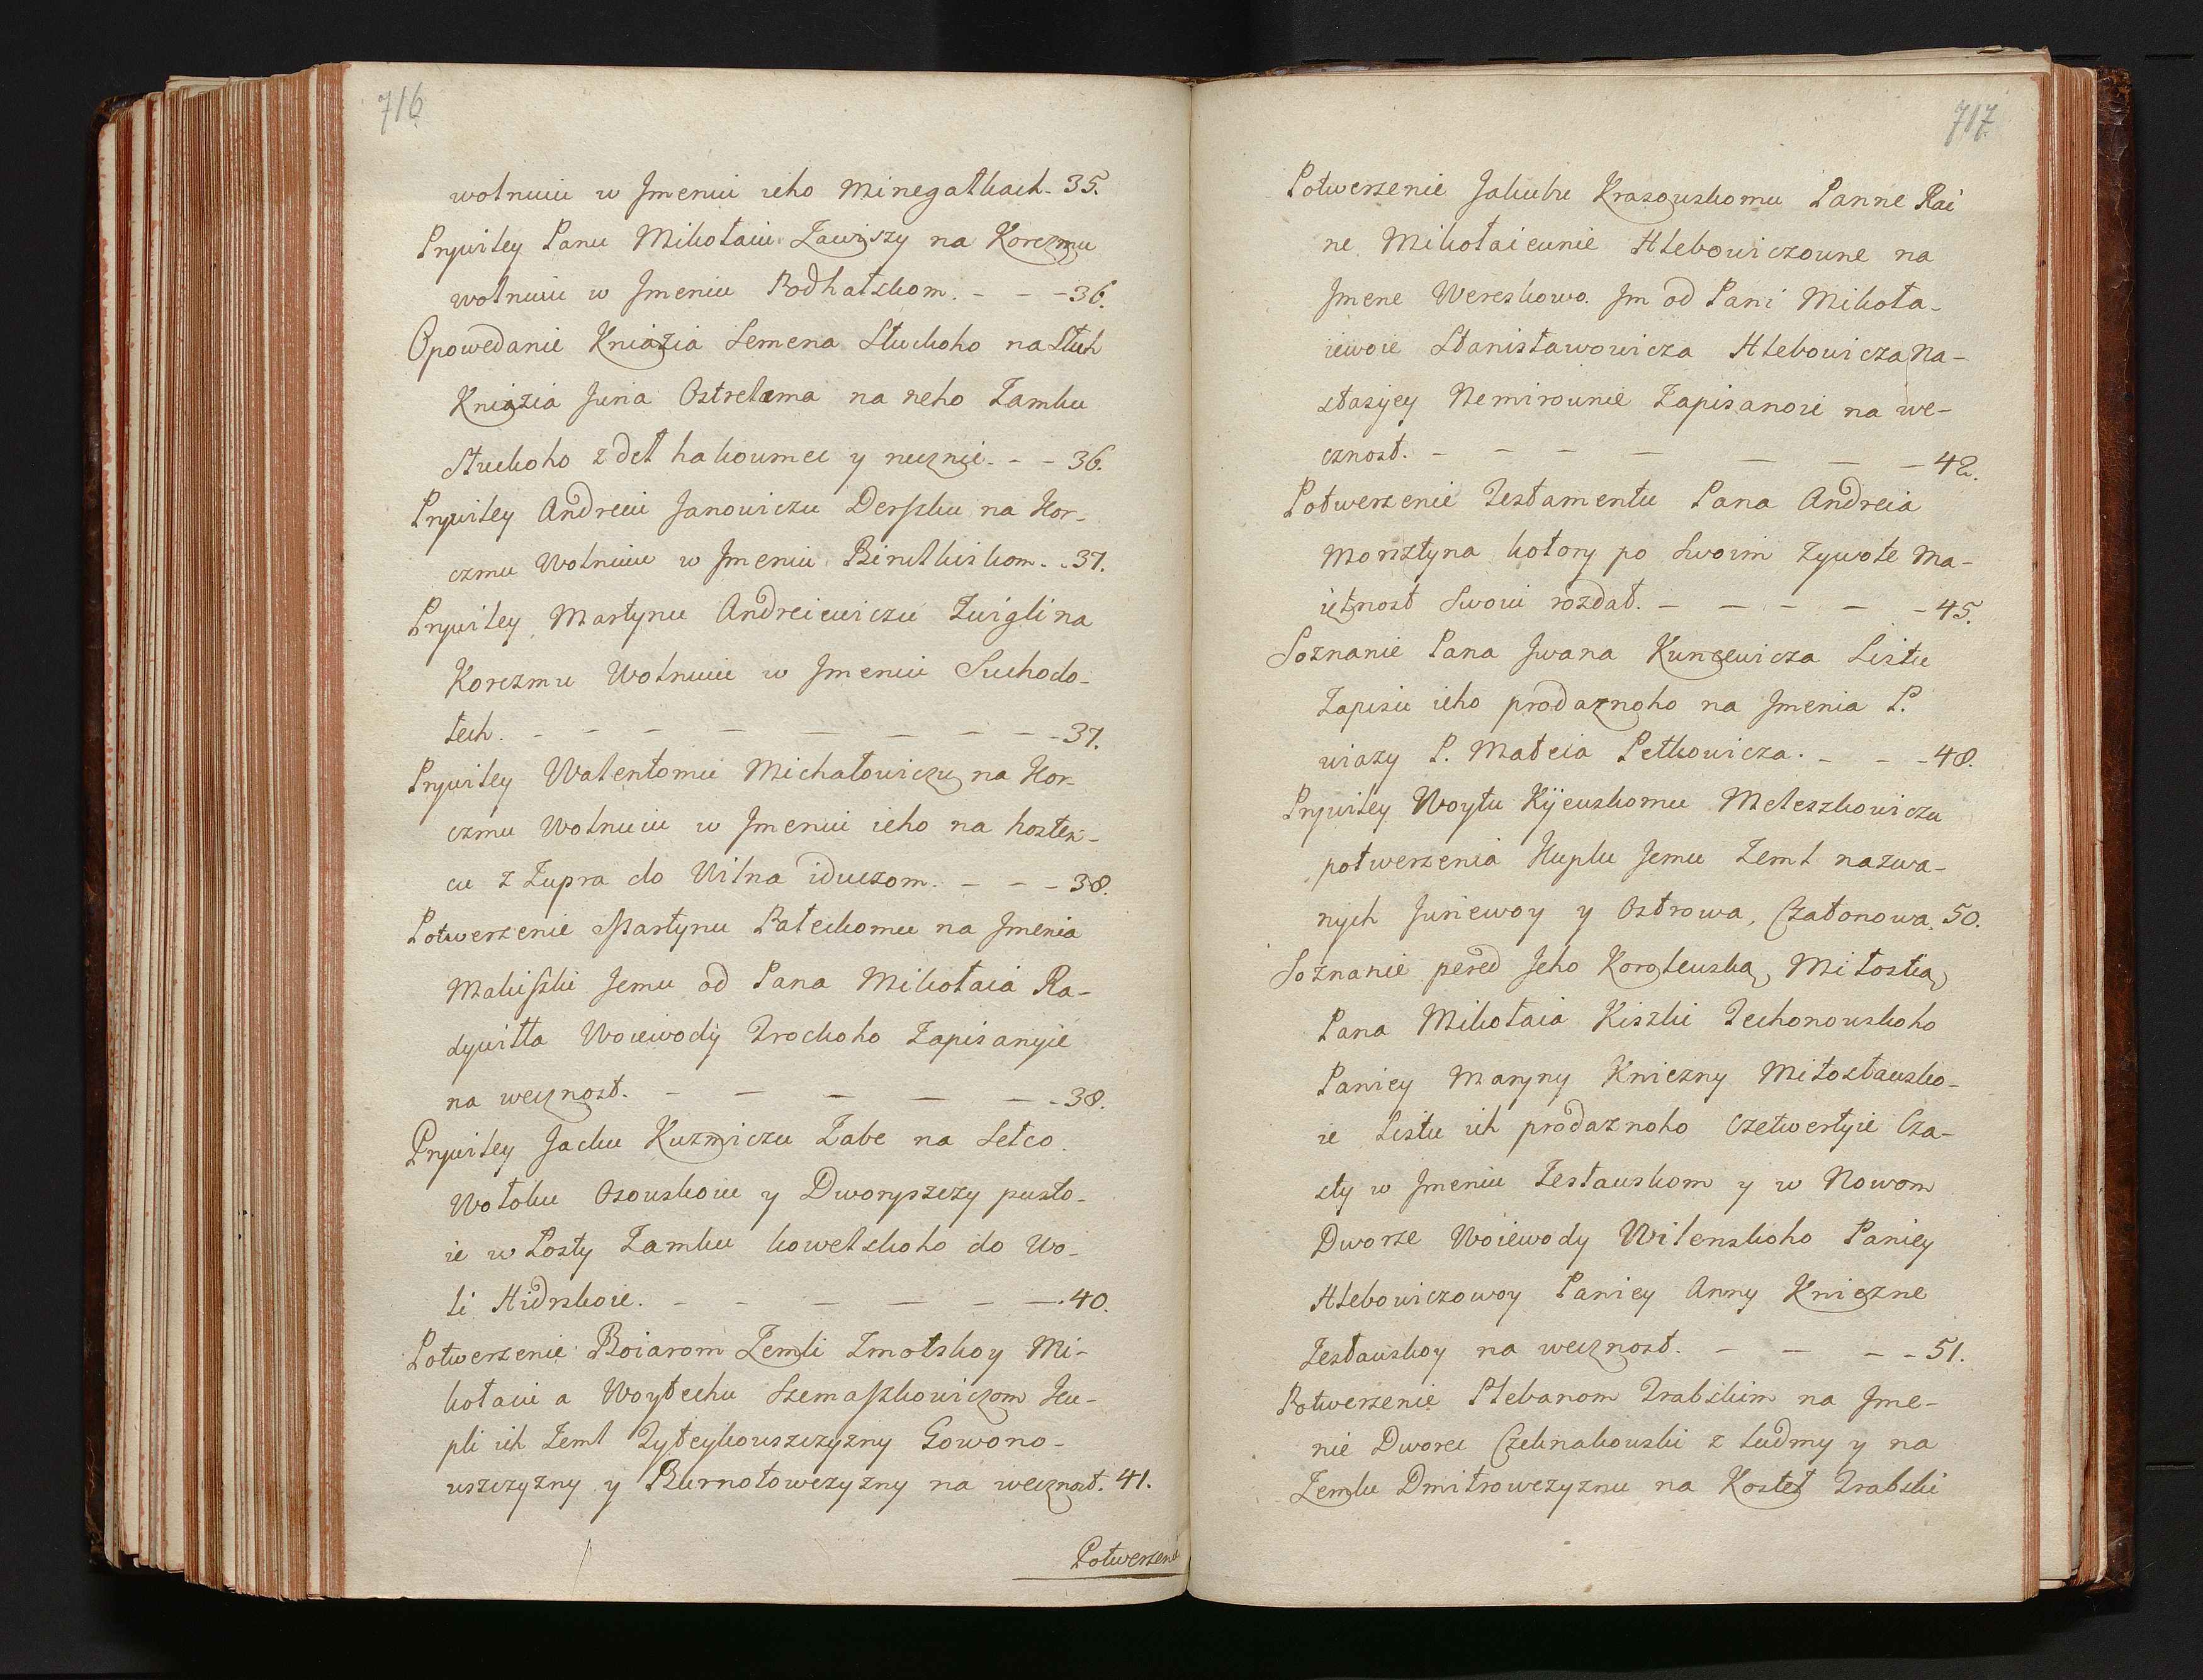 716
wolnuiu w Jmeniu ieho Minegałkach - 35.
Prywiley Panu Mikołaiu Zawiszy na Korczmu
wolnuiu w Jmeniu Podhatskom. - - - 36.
Opowedanie Kniazia Semena Słuckoho na Słuh
Kniazia Juria Ostrelama na neho Zamku
Słuckoho z det hakoumei y rucznie. - - 36.
Prywiley Andreiu Janowiczu Derszku na Kor-
czmu Wolnuiu w Jmeniu Birutkiskom. - 37.
Prywiley Martynu Andreiewiczu Zwigli na
Korczmu Wolnuiu w Jmeniu Suchodo-
łech. - - - - - - - - - 37.
Prywiley Walentomu Michałowiczu na Kor-
czmu Wolnuiu w Jmeniu ieho na hosten-
cu z Zupra do Wilna iduczom. - - - 38.
Potwerzenie Martynu Pałeckomu na Jmenia
Makiszki Jemu od Pana Mikołaia Ra-
dywiłła Woiewody Trockoho Zapisanyie
na wecznost. - - - - - - 38.
Prywiley Jacku Kuzmiczu Zabe na Selco
Wołoku Osouskoiu y Dworyszczy pusto-
ie w Posty Zamku kowelskoho do Wo-
li Hidrskoie. - - - - - - 40.
Potwerzenie Boiarom Zemli Zmotskoy Mi-
kołaiu a Woytechu Szemaszkowiczom Ku-
pli ich Zeml Tyteykouszczyzny Gowono-
uszczyzny y Burnotowczyzny na wecznost. 41.
Potwerzenie
717
Potwerzenie Jakubu Krasouskomu Panne Rai
ne Mikołaieunie Hlebowiczoune na
Jmene Wereskowo. Jm od Pani Mikoła-
iewoie Stanisławowicza Hlebowicza Na-
stasyey Nemirounie Zapisanoie na we-
cznost. - - - - - - - 42.
Potwerzenie Testamentu Pana Andreia
Morsztyna kotory po Swoim Zywote Ma-
ietnost Swoiu rozdał. - - - - - 45.
Soznanie Pana Jwana Kuncewicza Listu
Zapisu ieho prodaznoho na Jmenia P.
wiazy P. Mateia Petkowicza. - - - 48.
Prywiley Woytu Kijeuskomu Meleszkowiczu
potwerzenia Kuplu Jemu Zeml nazwa-
nych Juriewoy y Ostrowa, Czałonowa. 50.
Soznanie pered Jeho Koroleuska Miłostia
Pana Mikołaia Kiszki Techonouskoho
Paniey Maryny Kniezny Miłosłausko-
ie Listu ich prodaznoho Czetwertyie Cza-
sty w Jmeniu Zesłauskom y w Nowom
Dworze Woiewody Wilenskoho Paniey
Hlebowiczowoy Paniey Anny Kniezne
Zesłauskoy na wecznost. - - - - 51.
Potwerzenie Plebanom Trabskim na Jme-
nie Dworec Czeknakouski z ludmy y na
Zemlu Dmitrowczyznu na Kosteł Trabski